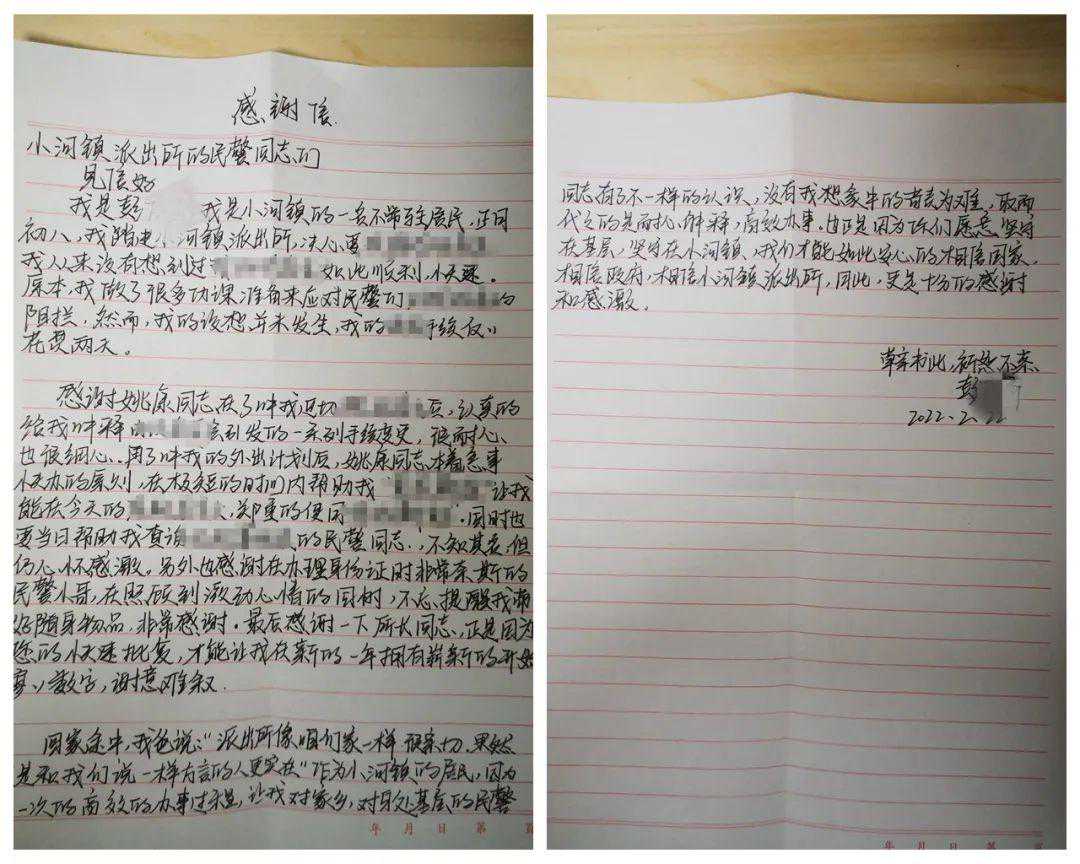 感谢信
小河镇派出所的民警同志们
见信好
我是彭 我是小河镇的一名不常驻居民,正月
初八,我踏进小河镇派出所,决心要
我从来没有想到过 如此顺利,快速。
原本,我做了很多功课准备来应对民警们 的
阻拦,然而,我的设想并未发生,我的 手续仅仅
花费两天。
感谢姚康同志,在了解我迫切 后,认真的
给我解释 会引发的一系列手续变更,很耐心、
也很细心。用了解我的外出计划后,姚康同志本着急事
快办的原则,在极短的时间内帮助我 让我
能在今天的 ,郑重的使用 。同时也
要当日帮助我查询 的民警同志,不知其名,但
仍心怀感激。另外也感谢在办理身份证时非常亲 的
民警小哥,在照顾到激动心情的同时,不忘提醒我带
好随身物品,非常感谢。最后感谢一下所长同志,正是因为
您的快速批复,才能让我在新的一年拥有崭新的开始
寥寥数字,谢意难叙.
回家途中,我爸说:“派出所像咱们家一样很亲切,果然
是和我们说一样方言的人更实在”作为小河镇的居民,因为
一次的高效的办事过程,让我对家乡,对身处基层的民警
年 月 日 第 页
同志有了不一样的认识,没有我想象中的 去为难,取而
代之的是耐心解释,高效办事。也正是因为你们愿意坚守
在基层,坚守在小河镇,我们才能如此安心的相信国家,
相信政府,相信小河镇派出所,因此,更是十分的感谢
和感激。
草率书此,祈恕不恭
彭
2022.2.22
年 月 日 第 页